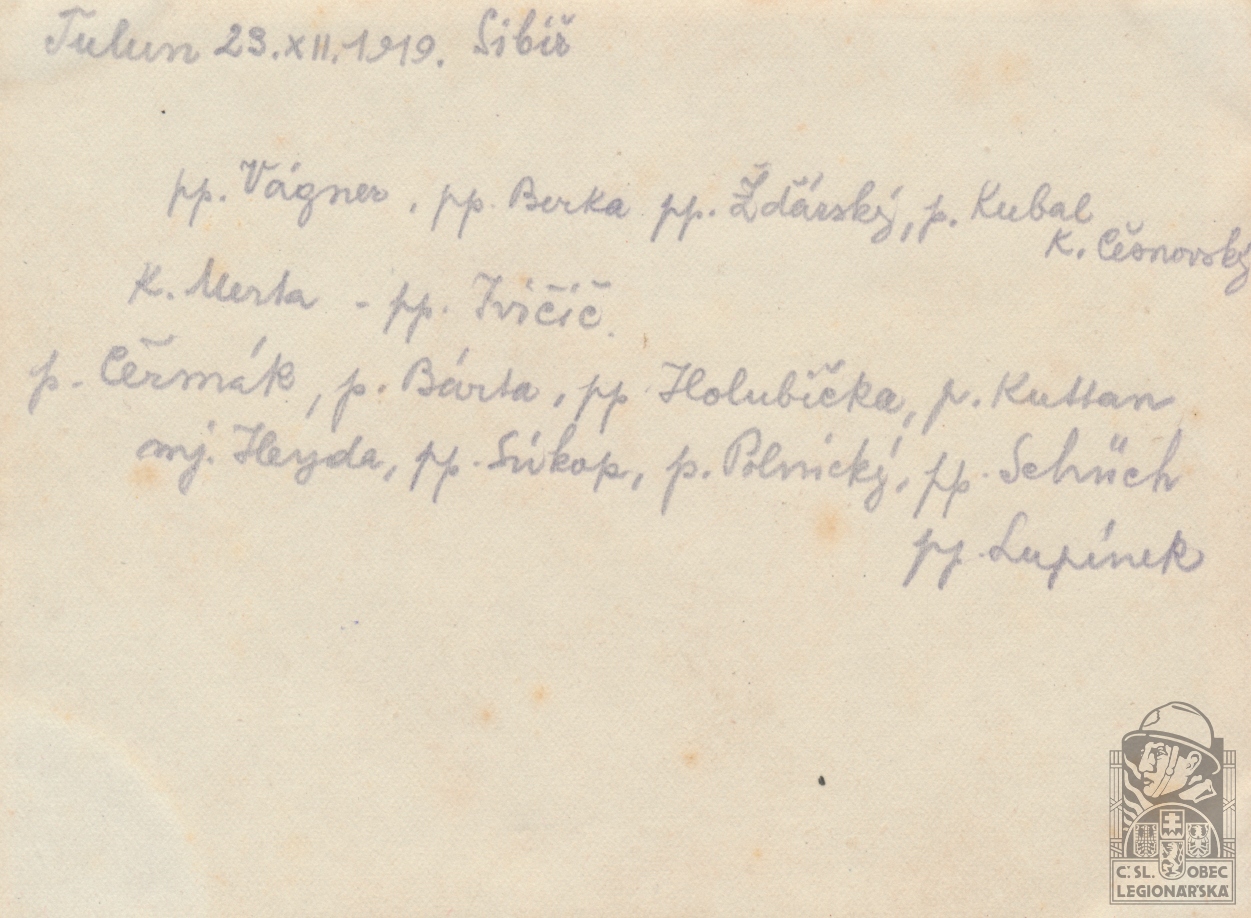 Tulun 23.XII.1919. Sibiř
pp. Vágner, pp. Berka pp. Žďárský, p. Kubal
K. Česnovský
K. Merta - pp. Ivičič.
p. Čermák, p. Bárta, pp Holubička, p. Kuttan
mj. Heyda, pp. Súkop, p. Polnický, pp. Schüch
pp. Lupínek
Č.SL. OBEC
LEGIONÁŘSKÁ